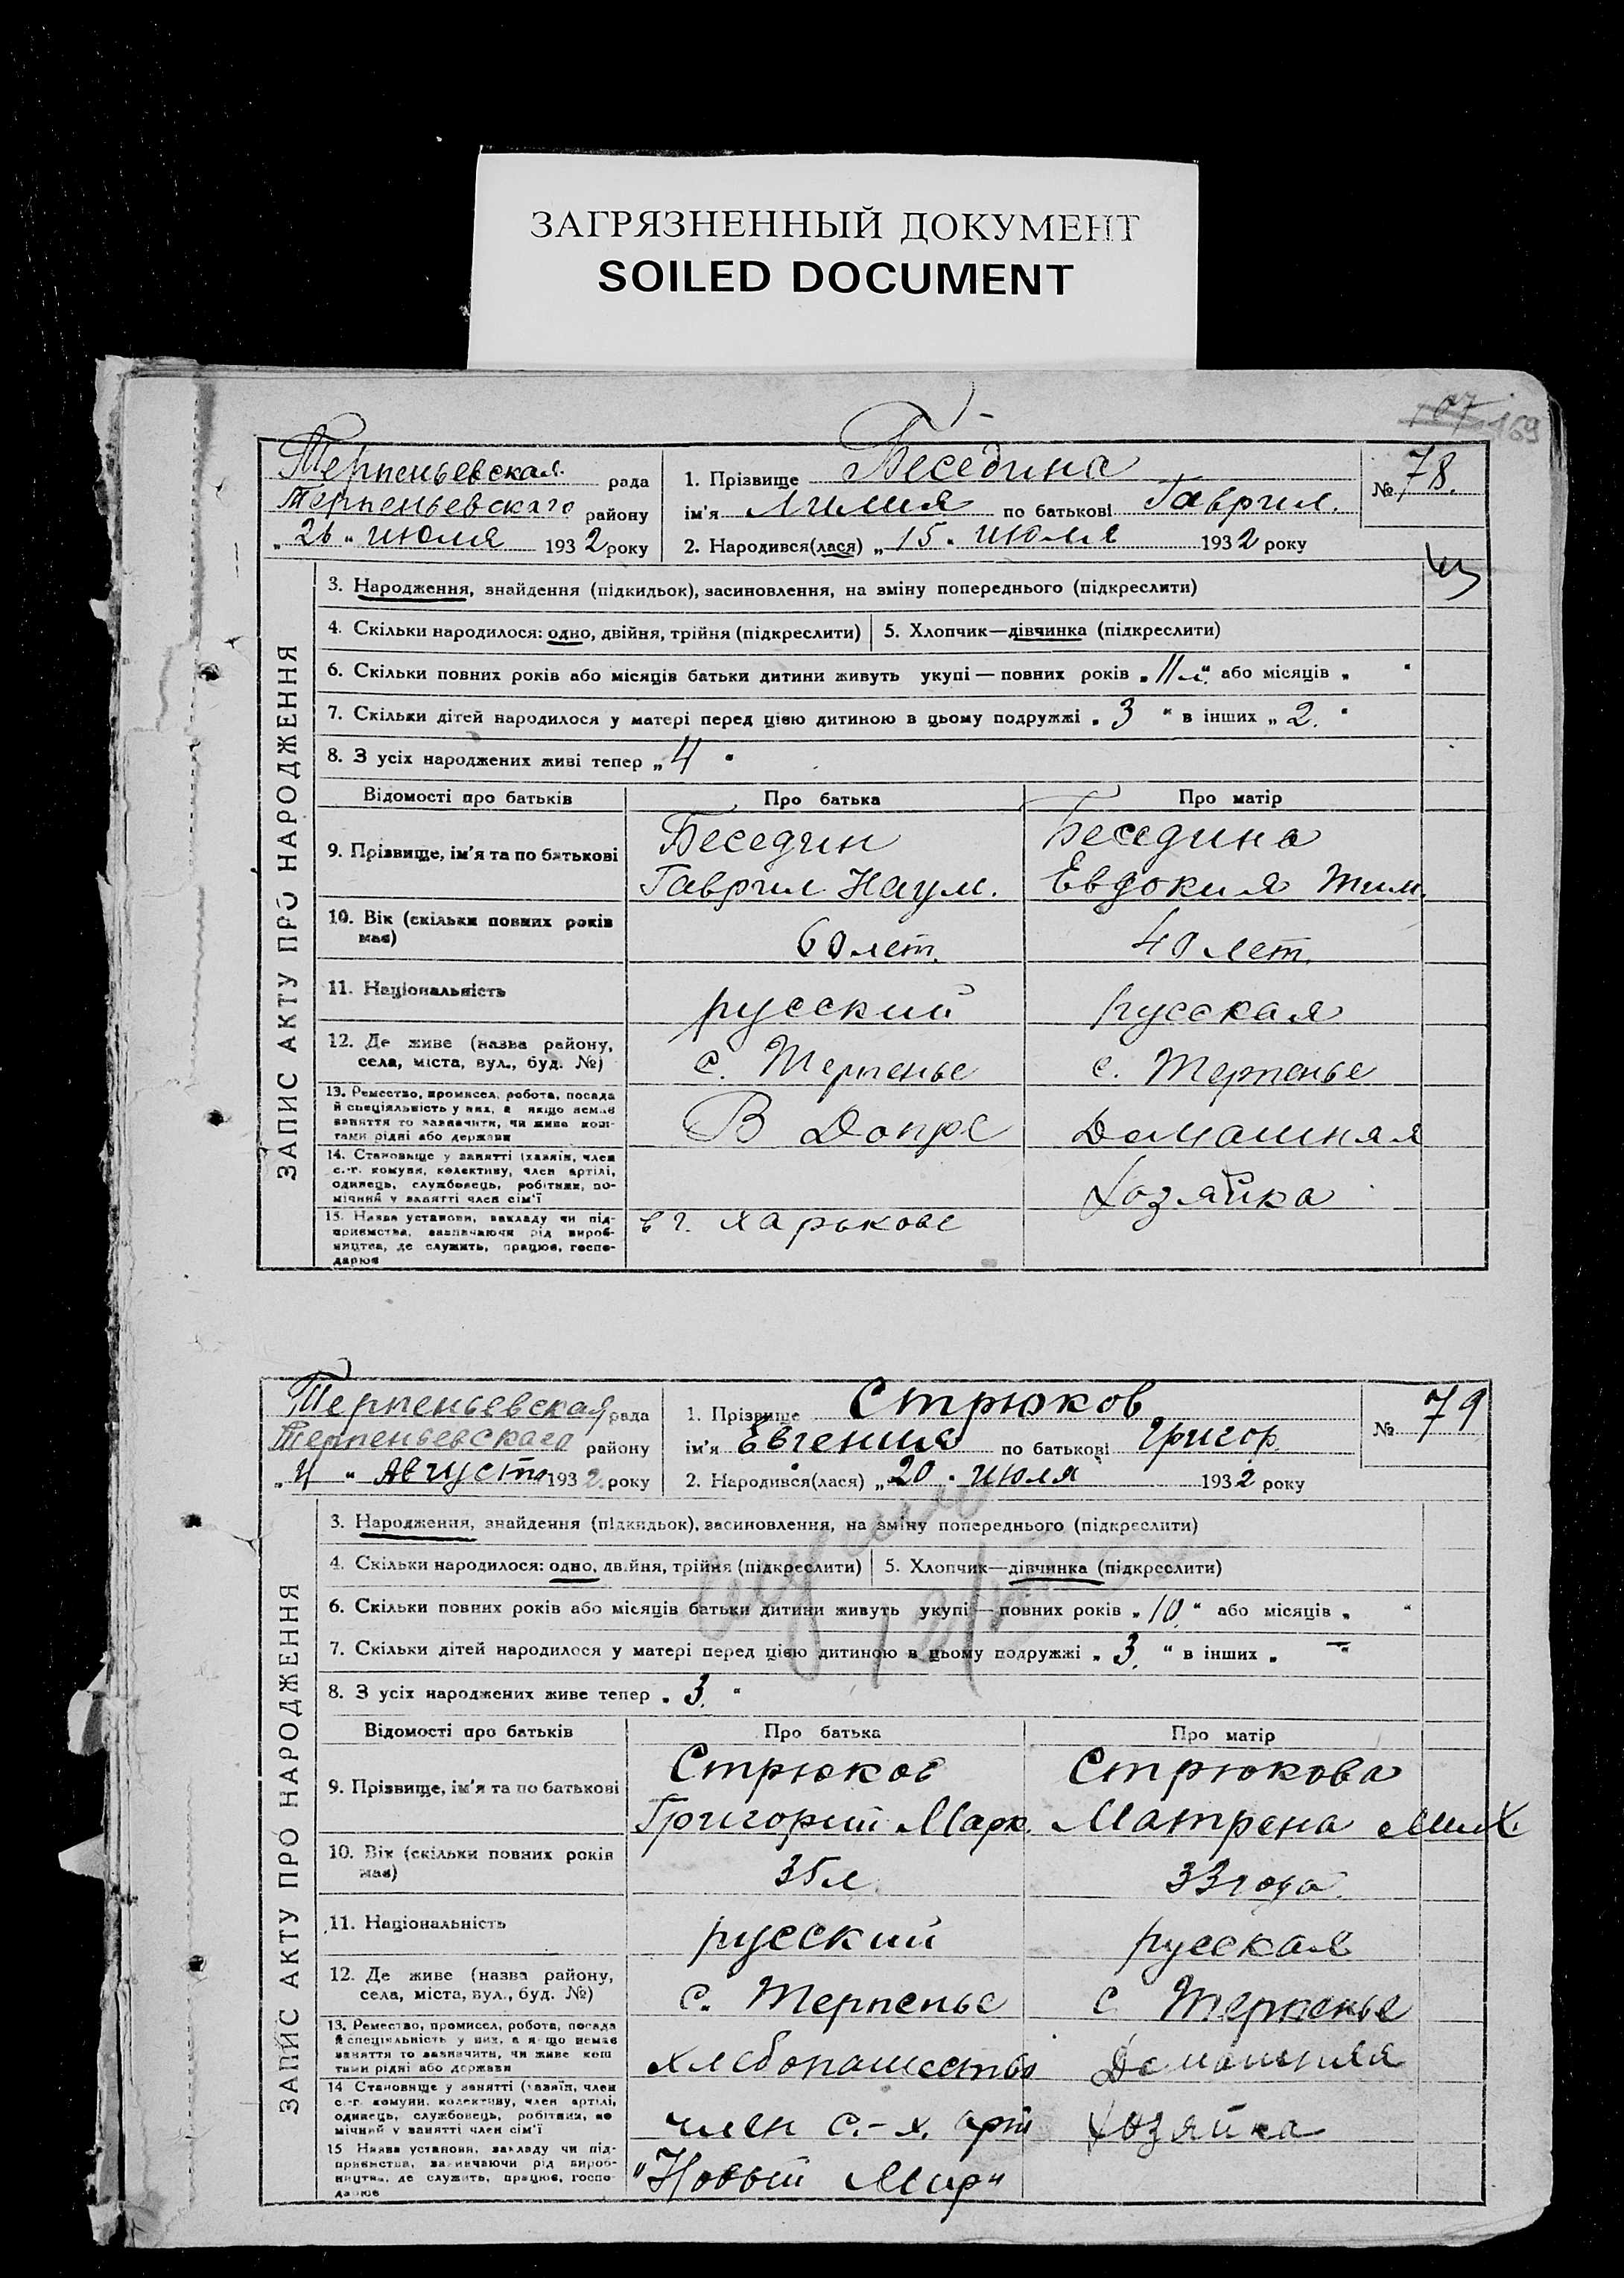 ЗАГРЯЗНЕННЫЙ ДОКУМЕНТ
SOILED DOCUMENT
169
ЗАПИС АКТУ ПРО НАРОДЖЕННЯ
Терпеньевская рада
Терпеньевского району
„26“ июля 1932 року
1. Прізвище Беседина
ім'я Лилия по батькові Гаврил.
2. Народився(лася) „15“ июля 1932 року
№ 78.
3. Народження, знайдення (підкидьок), засиновлення, на зміну попереднього (підкреслити)
4. Скільки народилося: одно, двійня, трійня (підкреслити) 5. Хлопчик—дівчинка (підкреслити)
6. Скільки повних років або місяців батьки дитини живуть укупі — повних років „11 л.“ або місяців „ “
7. Скільки дітей народилося у матері перед цією дитиною в цьому подружжі „3“ в інших „2.“
8. З усіх народжених живі тепер „4“
Відомості про батьків Про батька Про матір
9. Прізвище, ім'я та по батькові
Беседин
Гаврил Наум.
Беседина
Евдокия Тим.
10. Вік (скільки повних років має)
60 лет. 40 лет.
11. Національність русский русская
12. Де живе (назва району,
села, міста, вул., буд. №)
с. Терпенье с. Терпенье
13. Ремество, промисел, робота, посада
й спеціяльність у них, а якщо немає
заняття то зазначити, чи живе кош-
тами рідні або держави
В Допре Домашняя
14. Становище у занятті (хазяїн, член
с.-г. комуни, колективу, член артілі,
одинець, службовець, робітник, по-
мічний у занятті член сім'ї
Хозяйка
15. Назва установи, закладу чи під-
приємства, зазначаючи рід вироб-
ництва, де служить, працює, госпо-
дарює
в г. Харькове
ЗАПИС АКТУ ПРО НАРОДЖЕННЯ
Терпеньевская рада
Терпеньевского району
Августа 1932 року
1. Прізвище Стрюков
ім'я Евгения по батькові Григор.
2. Народився(лася) „20“ июля 1932 року
№ 79
3. Народження, знайдення (підкидьок), засиновлення, на зміну попереднього (підкреслити)
4. Скільки народилося: одно, двійня, трійня (підкреслити) 5. Хлопчик—дівчинка (підкреслити)
6. Скільки повних років або місяців батьки дитини живуть укупі — повних років „10.“ або місяців „ “
7. Скільки дітей народилося у матері перед цією дитиною в цьому подружжі „3.“ в інших „—“
8. З усіх народжених живе тепер „3.“
Відомості про батьків Про батька Про матір
9. Прізвище, ім'я та по батькові
Стрюков
Григорий Марк.
Стрюкова
Матрена Мих.
10. Вік (скільки повних років має)
35 л. 33 года.
11. Національність русский русская
12. Де живе (назва району,
села, міста, вул., буд. №)
с. Терпенье с. Терпенье
13. Ремество, промисел, робота, посада
й спеціяльність у них, а якщо немає
заняття то зазначити, чи живе кош
тами рідні або держави
хлебопашество Домашняя
14 Становище у занятті (хазяїн, член
с.-г. комуни, колективу, член артілі,
одинець, службовець, робітник, по
мічний у занятті член сім'ї
член с.-х. арт Хозяйка
15 Назва установи, закладу чи під-
приємства, зазначаючи рід вироб-
ництва, де служить, працює, госпо-
дарює
„Новый Мир“